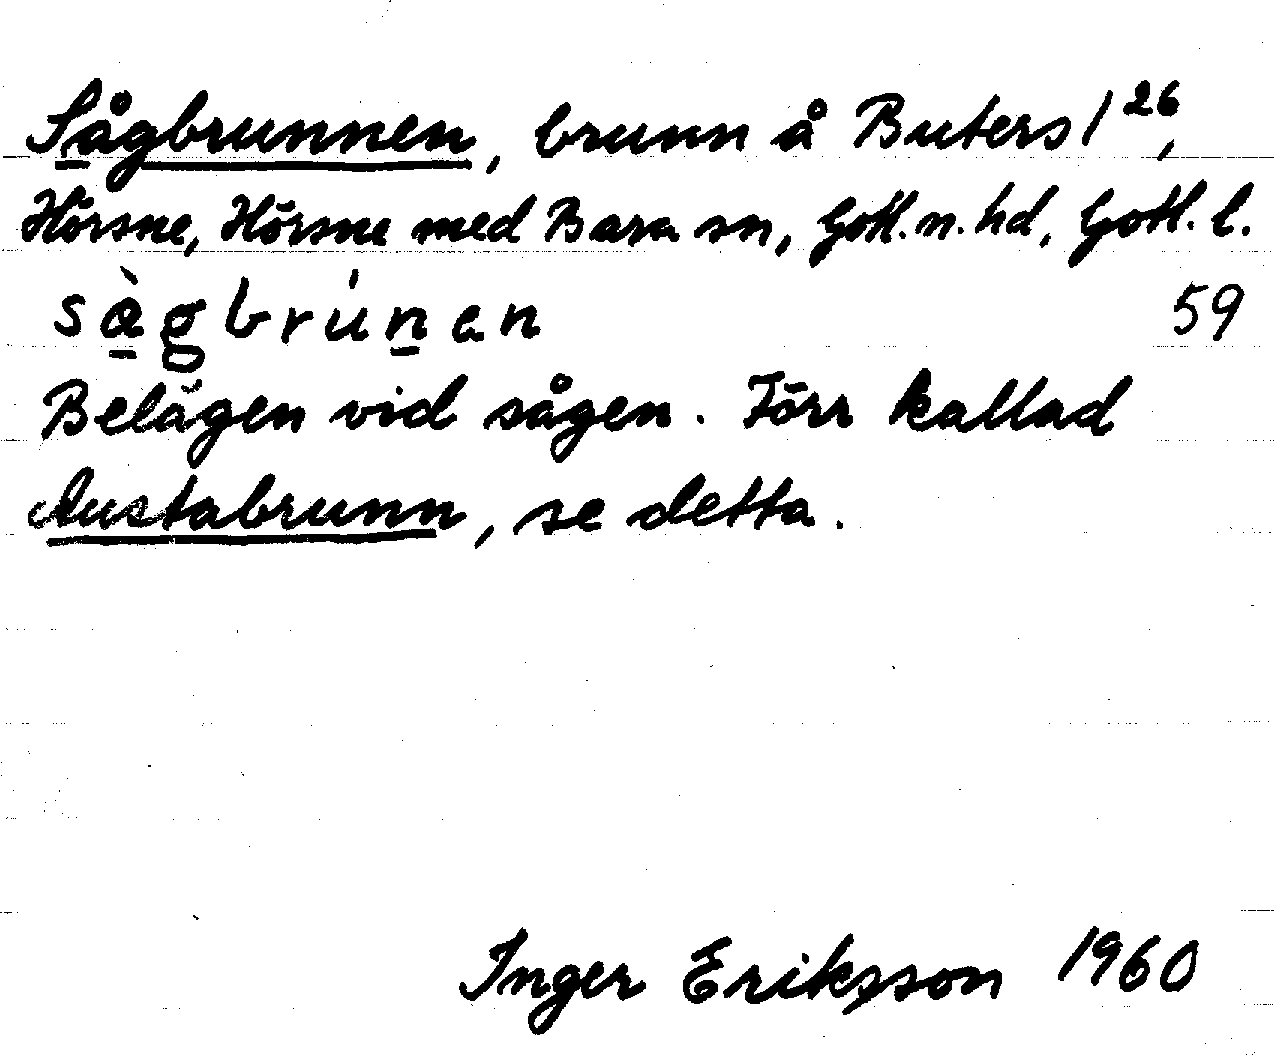 Sågbrunnen, brunn å Buters 1²⁶,
Hörsne, Hörsne med Bara sn, Gotl. n. hd, Gotl. l.
sàgbrúnen 59
Belägen vid sågen. Förr kallad
Austabrunn, se detta.
Inger Eriksson 1960